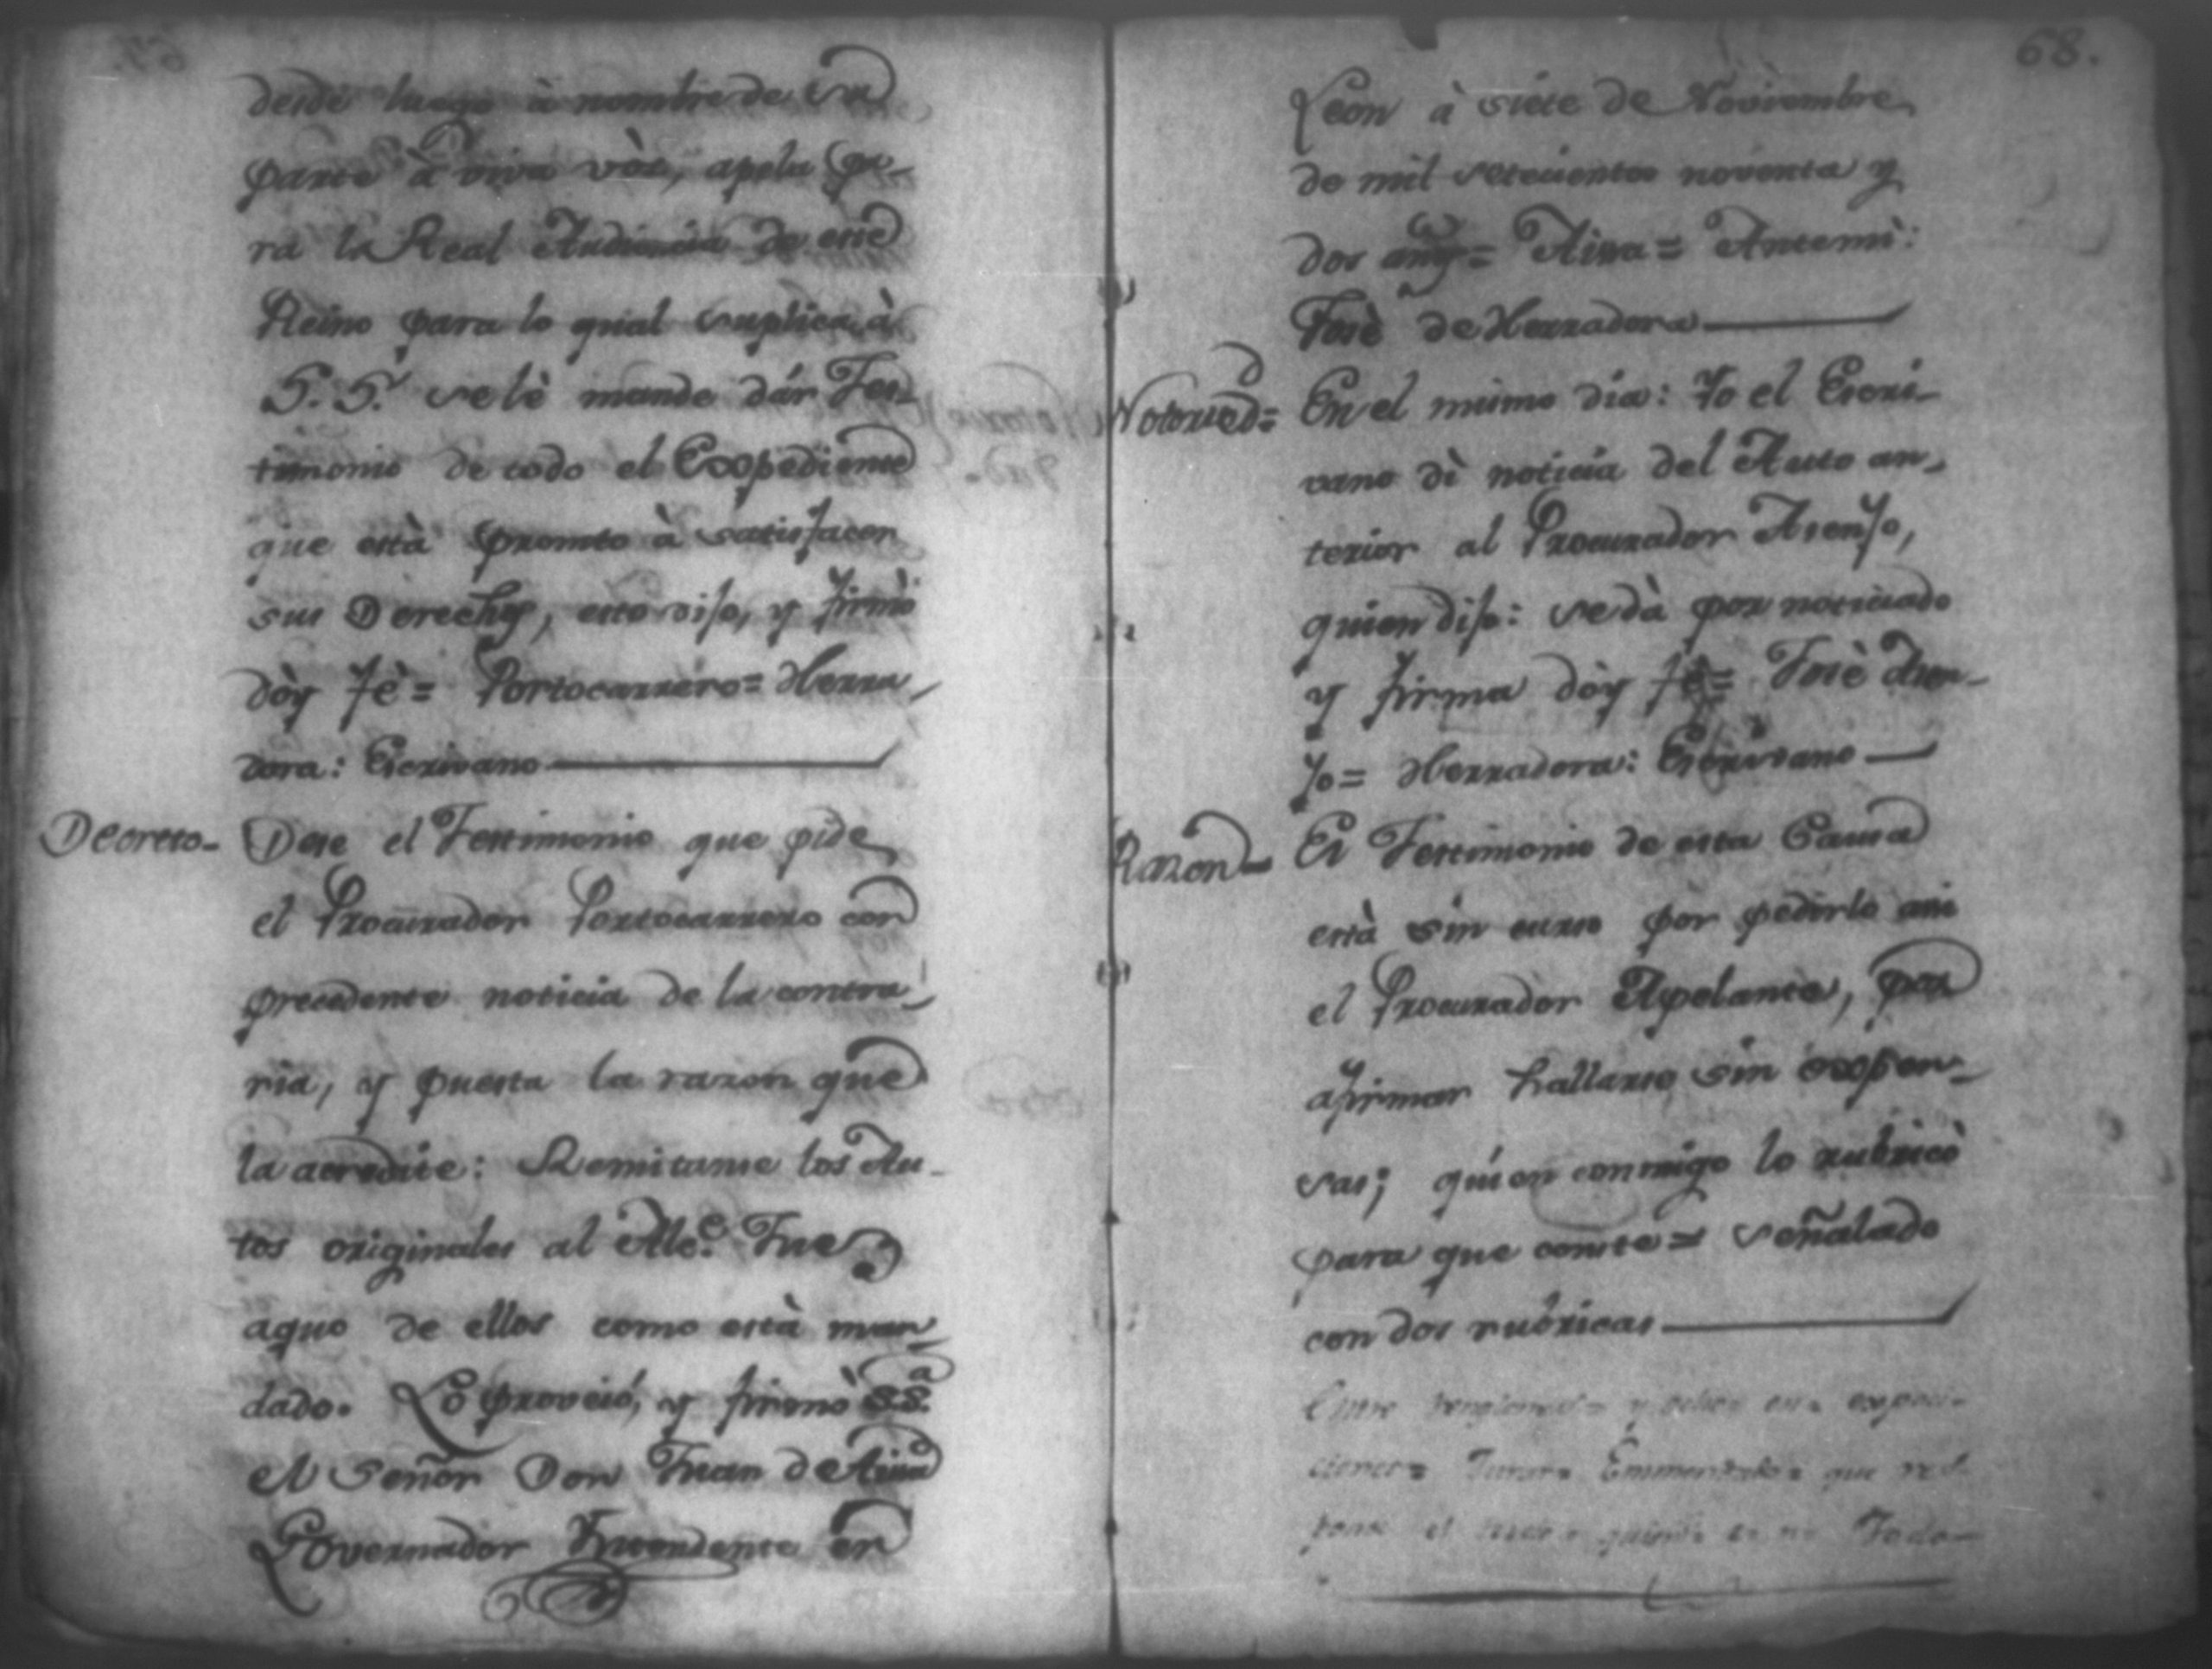 desde luego à nombre de su
parte à viva vòz, apela pa-
ra la Real Audiencia de este
Reino para lo qual suplica à
S. Sª. se lè mande dár Tes-
timonio de todo el Expediente
que està promto à satisfacer
sus Derechos, esto dijo, y firmò
dòy fè= Portocarrero= Herra-
dora: Escrivano
Decreto- Dese el Testimonio que pide
el Procurador Portocarrero con
precedente noticia de la contra-
ria, y puesta la razon que
la acredite: Remitanse los Au-
tos originales al Alcᵉ. Juez
aquo de ellos como està man-
dado. Lo proveió, y firmò S.Sª.
el Señor Don Juan de Aisa
Governador Intendente en
68.
Leon à siete de Noviembre
de mil setecientos noventa y
dos añoˢ= Aisa= Antemi:
Josè de Herradora
Notoried= En el mismo dia: Yo el Escri-
vano dì noticia del Auto an-
terior al Procurador Asenjo,
quien dijo: se dà por noticiado
y firma dòy fè= Josè Asen-
jo= Herradora: Escrivano
Razon- El Testimonio de esta Causa
està sin curso por pedirlo asi
el Procurador Apelante, por
afirmar hallarse sin expen-
sas; quien conmigo lo rubricò
para que conste= Señalado
con dos rubricas
Entre renglones= y
Emmendado= que
el Todo